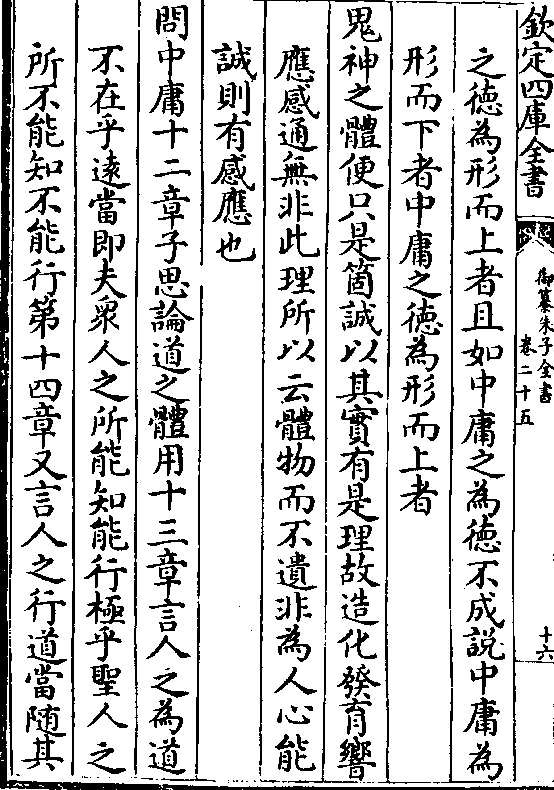 欽定四庫全書
御纂朱子全書
卷二十五
十六
之徳為形而上者且如中庸之為徳不成説中庸為
形而下者中庸之徳為形而上者
鬼神之體便只是箇誠以其實有是理故造化發育響
應感通無非此理所以云體物而不遺非為人心能
誠則有感應也
問中庸十二章子思論道之體用十三章言人之為道
不在乎逺當即夫衆人之所能知能行極乎聖人之
所不能知不能行第十四章又言人之行道當随其